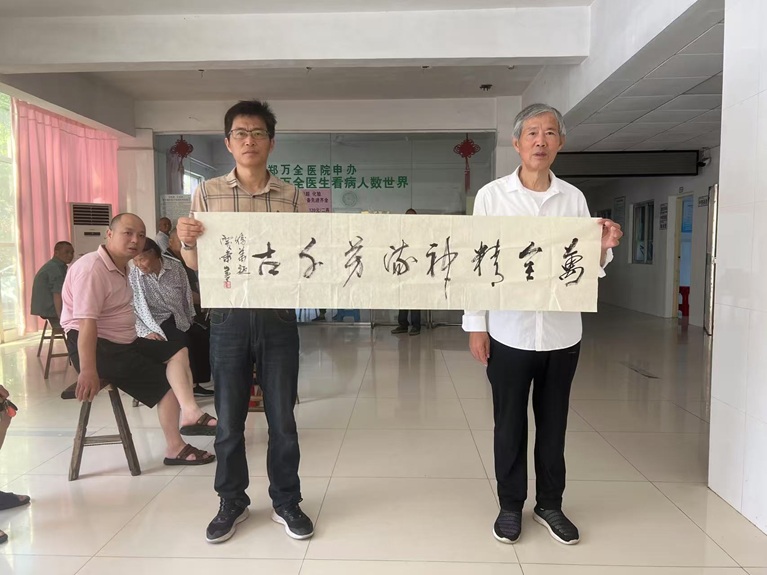 郑万全医院申办
万全医生看病人数世界
萬全精神流芳千古